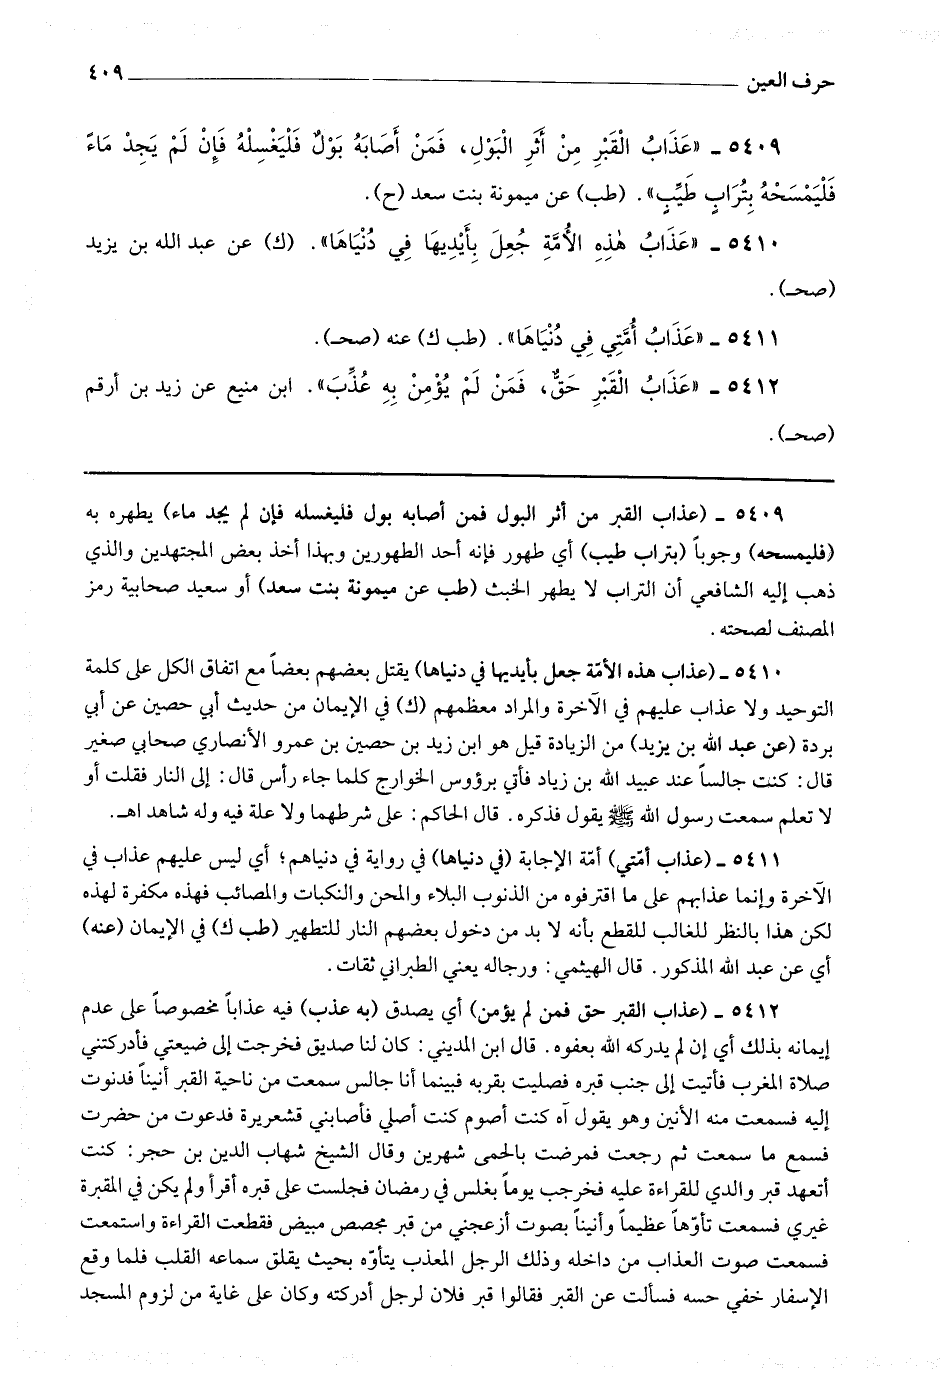 حرف العين ٤٠٩
٥٤٠٩ ـ «عَذَابُ الْقَبْرِ مِنْ أَثَرِ الْبَوْلِ، فَمَنْ أَصَابَهُ بَوْلٌ فَلْيَغْسِلْهُ فَإِنْ لَمْ يَجِدْ مَاءً
فَلْيَمْسَحْهُ بِتُرَابٍ طَيِّبٍ». (طب) عن ميمونة بنت سعد (ح).
٥٤١٠ ـ «عَذَابُ هٰذِهِ الأُمَّةِ جُعِلَ بِأَيْدِيهَا فِي دُنْيَاهَا». (ك) عن عبد الله بن يزيد
(صحـ).
٥٤١١ ـ «عَذَابُ أُمَّتِي فِي دُنْيَاهَا». (طب ك) عنه (صحـ).
٥٤١٢ ـ «عَذَابُ الْقَبْرِ حَقٌّ، فَمَنْ لَمْ يُؤْمِنْ بِهِ عُذِّبَ». ابن منيع عن زيد بن أرقم
(صحـ).
٥٤٠٩ ـ (عذاب القبر من أثر البول فمن أصابه بول فليغسله فإن لم يجد ماء) يطهره به
(فليمسحه) وجوباً (بتراب طيب) أي طهور فإنه أحد الطهورين وبهذا أخذ بعض المجتهدين والذي
ذهب إليه الشافعي أن التراب لا يطهر الخبث (طب عن ميمونة بنت سعد) أو سعيد صحابية رمز
المصنف لصحته.
٥٤١٠ ـ (عذاب هذه الأمّة جعل بأيديها في دنياها) يقتل بعضهم بعضاً مع اتفاق الكل على كلمة
التوحيد ولا عذاب عليهم في الآخرة والمراد معظمهم (ك) في الإيمان من حديث أبي حصين عن أبي
بردة (عن عبد الله بن يزيد) من الزيادة قيل هو ابن زيد بن حصين بن عمرو الأنصاري صحابي صغير
قال: كنت جالساً عند عبيد الله بن زياد فأتي برؤوس الخوارج كلما جاء رأس قال: إلى النار فقلت أو
لا تعلم سمعت رسول الله ﷺ يقول فذكره. قال الحاكم: على شرطهما ولا علة فيه وله شاهد اهـ.
٥٤١١ ـ (عذاب أمّتي) أمّة الإجابة (في دنياها) في رواية في دنياهم؛ أي ليس عليهم عذاب في
الآخرة وإنما عذابهم على ما اقترفوه من الذنوب البلاء والمحن والنكبات والمصائب فهذه مكفرة لهذه
لكن هذا بالنظر للغالب للقطع بأنه لا بد من دخول بعضهم النار للتطهير (طب ك) في الإيمان (عنه)
أي عن عبد الله المذكور. قال الهيثمي: ورجاله يعني الطبراني ثقات.
٥٤١٢ ـ (عذاب القبر حق فمن لم يؤمن) أي يصدق (به عذب) فيه عذاباً مخصوصاً على عدم
إيمانه بذلك أي إن لم يدركه الله بعفوه. قال ابن المديني: كان لنا صديق فخرجت إلى ضيعتي فأدركتني
صلاة المغرب فأتيت إلى جنب قبره فصليت بقربه فبينما أنا جالس سمعت من ناحية القبر أنيناً فدنوت
إليه فسمعت منه الأنين وهو يقول آه كنت أصوم كنت أصلي فأصابني قشعريرة فدعوت من حضرت
فسمع ما سمعت ثم رجعت فمرضت بالحمى شهرين وقال الشيخ شهاب الدين بن حجر: كنت
أتعهد قبر والدي للقراءة عليه فخرجب يوماً بغلس في رمضان فجلست على قبره أقرأ ولم يكن في المقبرة
غيري فسمعت تأوّهاً عظيماً وأنيناً بصوت أزعجني من قبر مجصص مبيض فقطعت القراءة واستمعت
فسمعت صوت العذاب من داخله وذلك الرجل المعذب يتأوّه بحيث يقلق سماعه القلب فلما وقع
الإسفار خفي حسه فسألت عن القبر فقالوا قبر فلان لرجل أدركته وكان على غاية من لزوم المسجد